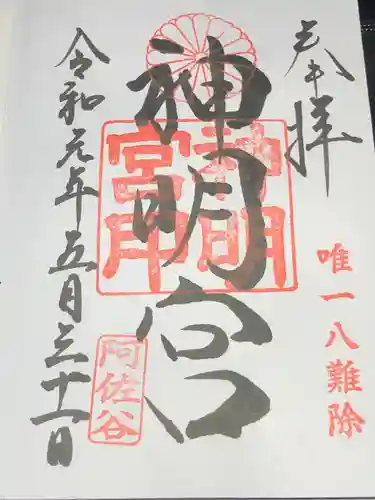 奉拝
唯一八難除
神明宮
神明宮印
令和元年五月三十一日
阿佐谷